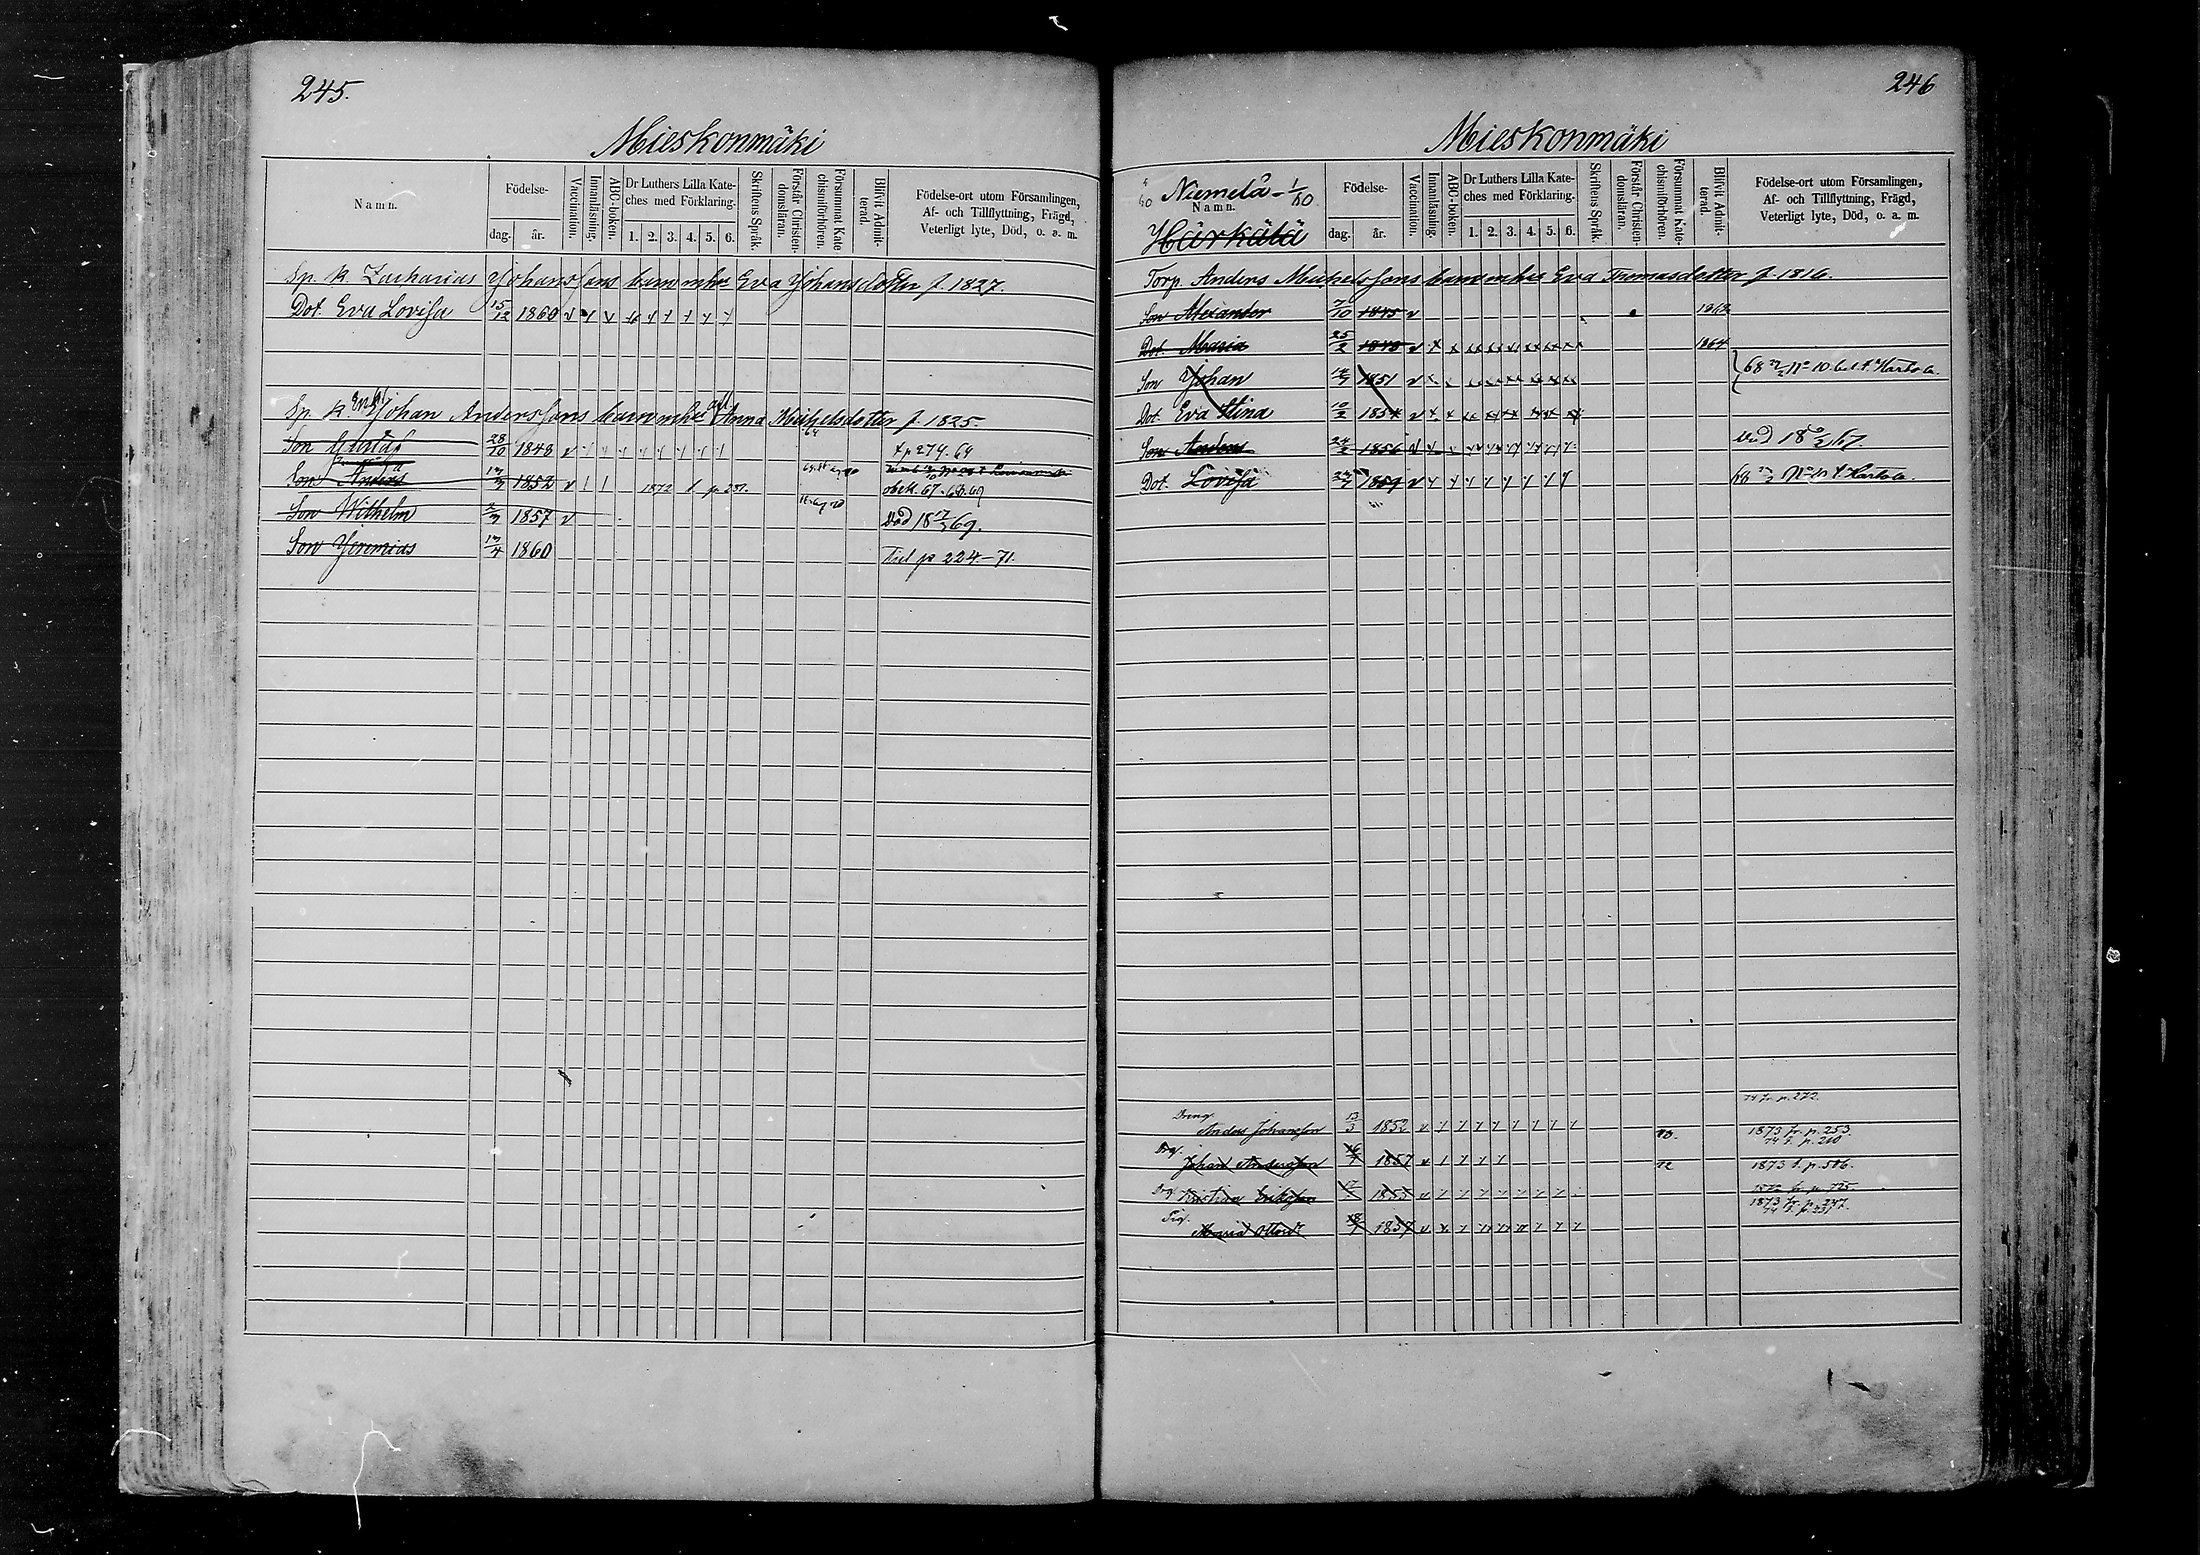 245.
Mieskonmäki
Namn.
Födelse-
dag. år.
Vaccination.
Innanläsning.
ABC-boken.
Dr Luthers Lilla Kate-
ches med Förklaring.
1. 2. 3. 4. 5. 6.
Skriftens Språk.
Förstår Christen-
domsläran.
Försummat Kate-
chismiförhören.
Blifvit Admit-
terad.
Födelse-ort utom Församlingen,
Af- och Tillflyttning, Frägd,
Veterligt lyte, Död, o. a. m.
Sp. k. Zacharias Johanssons barn m hu Eva Johansdotter f. 1827.
Dot. Eva Lovisa 15/12 1860 v
Sp. k Johan Anderssons barn m hu Anna Michelsdotter f. 1825.
Son 28/10 1848 v t p 274. 64
Son Anders 13/3 1852 v 1872 t p 237. obek. 67. 68. 69
Son Wilhelm 1857 v Död 18 17/3 69.
Son Jeremias 13/4 1860 Till p 224.–71.
246
Mieskonmäki
Niemelä – 1/60
Namn.
Harkälä
Födelse-
dag. år.
Vaccination.
Innanläsning.
ABC-boken.
Dr Luthers Lilla Kate-
ches med Förklaring.
1. 2. 3. 4. 5. 6.
Skriftens Språk.
Förstår Christen-
domsläran.
Försummat Kate-
chismiförhören.
Blifvit Admit-
terad.
Födelse-ort utom Församlingen,
Af- och Tillflyttning, Frägd,
Veterligt lyte, Död, o. a. m.
Torp. Anders Michelssons barn m hu Eva Thomasdotter f. 1816.
Son Alexander 7/10 1845 v 1862
Dot. Maria 25/2 1848 v 1864
Son Johan 1851 v
68 No 10 t Hartola.
Dot. Eva Stina 10/2 1854 v
Son Anders 24/2 1856 v Död 18 67.
Dot. Lovisa 1859 v 68 No 10 t Hartola.
74 fr. p. 272.
Dreng. Anders Johansson 13/3 1852 v
70. 1873 fr. p. 253.
74 t. p. 210
Drg. Johan Andersson 1857 v 72 1873 t. p. 506.
Drg. Kristian Eriksson 1855 v 1872 fr. p. 725.
1873 fr. p. 247.
74 t. p. 231.
Pig. Maria Ottosd. 18/7 1857 v